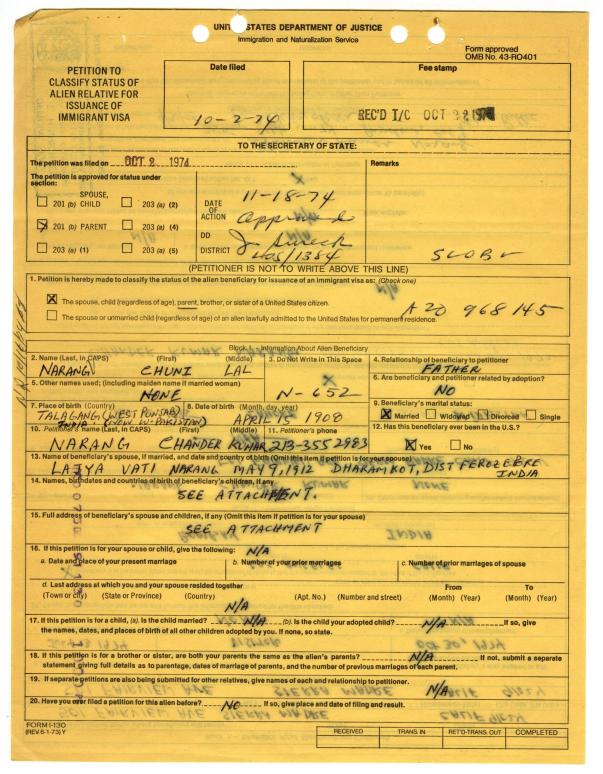 UNITED STATES DEPARTMENT OF JUSTICE
Immigration and Naturalization Service
Form approved
OMB No. 43-RO401
PETITION TO
CLASSIFY STATUS OF
ALIEN RELATIVE FOR
ISSUANCE OF
IMMIGRANT VISA
Date filed
10-2-74
Fee stamp
REC'D T/C OCT 22 1974
TO THE SECRETARY OF STATE:
The petition was filed on OCT 2 1974
Remarks
The petition is approved for status under
section:
SPOUSE,
201 (b) CHILD
203 (a) (2)
201 (b) PARENT
203 (a) (4)
203 (a) (1)
203 (a) (5)
DATE
OF
ACTION
11-18-74
Approved
DD
DISTRICT
LOS/1384
(PETITIONER IS NOT TO WRITE ABOVE THIS LINE)
1. Petition is hereby made to classify the status of the alien beneficiary for issuance of an immigrant visa as: (Check one)
The spouse, child (regardless of age), parent, brother, or sister of a United States citizen.
The spouse or unmarried child (regardless of age) of an alien lawfully admitted to the United States for permanent residence.
A20 968 145
Block I - Information About Alien Beneficiary
2. Name (Last, in CAPS) (First) (Middle)
NARANG CHUNI LAL
3. Do Not Write in This Space
N-652
4. Relationship of beneficiary to petitioner
FATHER
5. Other names used; (including maiden name if married woman)
NONE
6. Are beneficiary and petitioner related by adoption?
NO
7. Place of birth (Country)
TALAGANG (WEST PUNJAB)
INDIA. (NOW W-PAKISTAN)
8. Date of birth (Month, day, year)
APRIL 15 1908
9. Beneficiary's marital status:
Married Widowed Divorced Single
10. Petitioner's name (Last, in CAPS) (First) (Middle)
NARANG CHANDER KUMAR
11. Petitioner's phone
213-3552983
12. Has this beneficiary ever been in the U.S.?
Yes No
13. Name of beneficiary's spouse, if married, and date and country of birth (Omit this item if petition is for your spouse)
LAJYA VATI NARANG MAY 9, 1912 DHARAMKOT, DIST FEROZEPRE
INDIA
14. Names, birthdates and countries of birth of beneficiary's children, if any
SEE ATTACHMENT.
15. Full address of beneficiary's spouse and children, if any (Omit this item if petition is for your spouse)
SEE ATTACHMENT
16. If this petition is for your spouse or child, give the following: N/A
a. Date and place of your present marriage
b. Number of your prior marriages
c. Number of prior marriages of spouse
d. Last address at which you and your spouse resided together
From To
(Town or city) (State or Province) (Country) (Apt. No.) (Number and street) (Month) (Year) (Month) (Year)
N/A
17. If this petition is for a child, (a). Is the child married? N/A (b). Is the child your adopted child? N/A If so, give
the names, dates, and places of birth of all other children adopted by you. If none, so state.
18. If this petition is for a brother or sister, are both your parents the same as the alien's parents? N/A If not, submit a separate
statement giving full details as to parentage, dates of marriage of parents, and the number of previous marriages of each parent.
19. If separate petitions are also being submitted for other relatives, give names of each and relationship to petitioner.
N/A
20. Have you ever filed a petition for this alien before? NO If so, give place and date of filing and result.
FORM I-130
(REV. 6-1-73) Y
RECEIVED TRANS. IN RET'D-TRANS. OUT COMPLETED